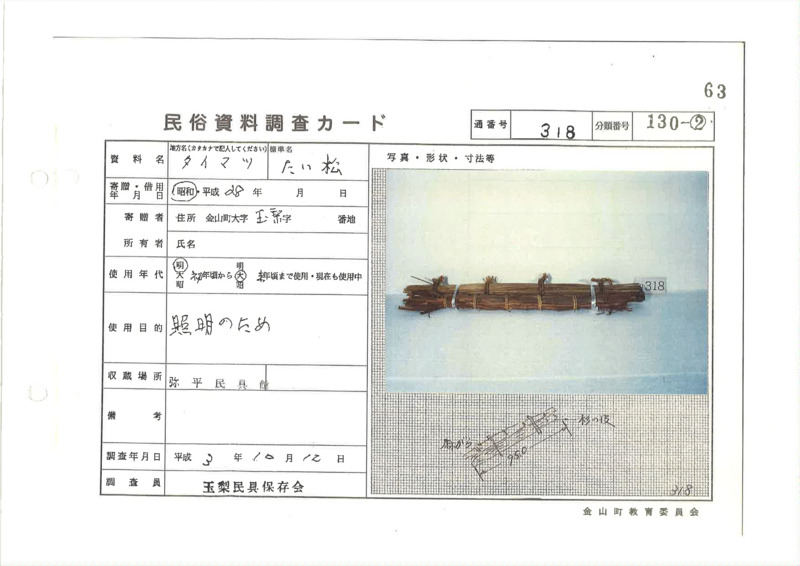 63
民俗資料調査カード
通番号 318 分類番号 130-②
資料名 地方名(カタカナで記入してください) タイマツ 標準名 たい松
寄贈・借用年月日 昭和・平成 28年 月 日
寄贈者 住所 金山町大字 玉梨 字 番地
所有者 氏名
使用年代 明 大 昭 年頃から 明 大 昭 年頃まで使用・現在も使用中
使用目的 照明のため
収蔵場所 弥平民具館
備考
調査年月日 平成 3年 10月 12日
調査員 玉梨民具保存会
写真・形状・寸法等
318
杉の皮
95.0
318
金山町教育委員会